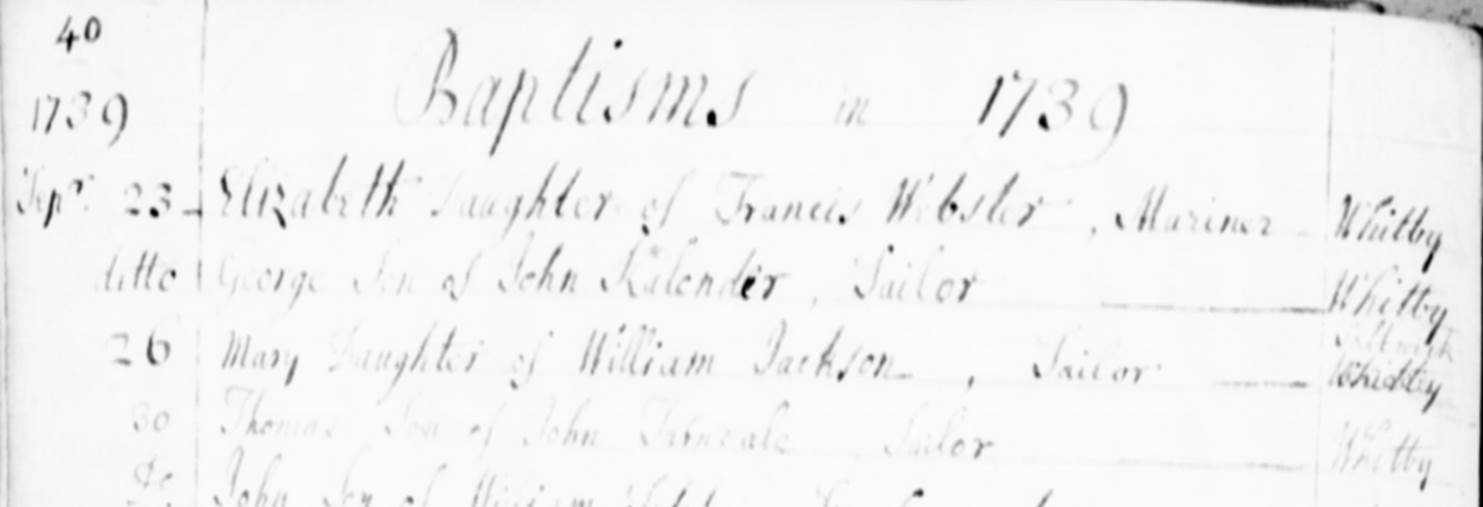 40
1739 Baptisms in 1739
Sepr. 23 Elizabeth Daughter of Francis Webster, Mariner Whitby
ditto George Son of John Kalender, Sailor Whitby
26 Mary Daughter of William Jackson, Sailor Whitby
30 Thomas Son of John Sailor Whitby
Do. John Son of William